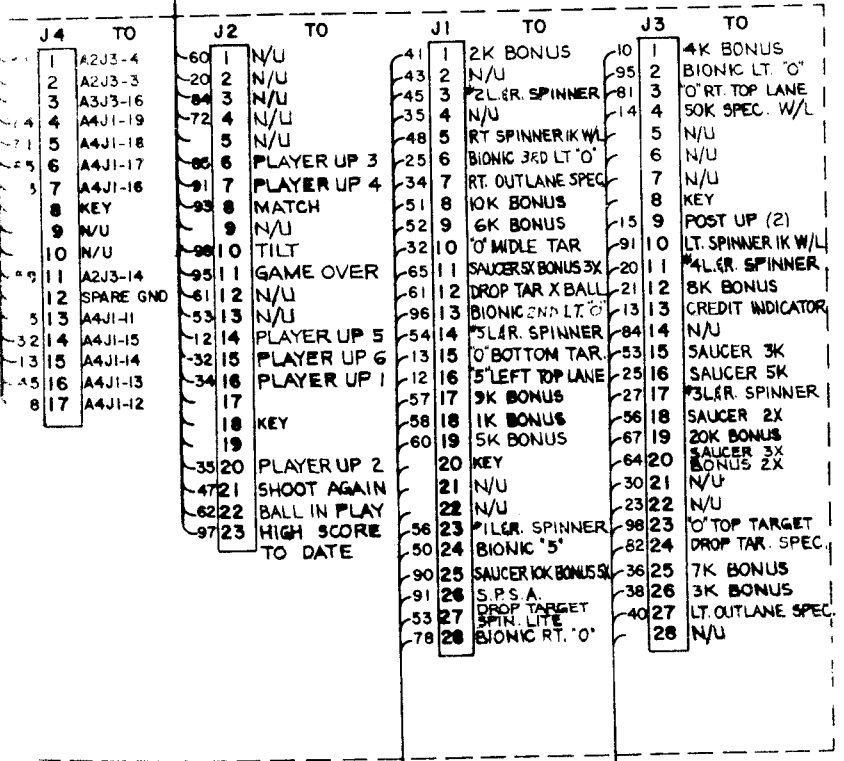 J4 TO
1 A2J3-4
2 A2J3-3
3 A3J3-16
4 A4J1-19
5 A4J1-18
6 A4J1-17
7 A4J1-16
8 KEY
9 N/U
10 N/U
11 A2J3-14
12 SPARE GND
5 13 A4J1-11
-32 14 A4J1-15
-13 15 A4J1-14
16 A4J1-13
8 17 A4J1-12
J2 TO
60 1 N/U
20 2 N/U
84 3 N/U
72 4 N/U
5 N/U
85 6 PLAYER UP 3
91 7 PLAYER UP 4
93 8 MATCH
9 N/U
98 10 TILT
95 11 GAME OVER
61 12 N/U
53 13 N/U
12 14 PLAYER UP 5
32 15 PLAYER UP 6
34 16 PLAYER UP 1
17
18 KEY
19
35 20 PLAYER UP 2
47 21 SHOOT AGAIN
62 22 BALL IN PLAY
97 23 HIGH SCORE
TO DATE
J1 TO
41 1 2K BONUS
43 2 N/U
45 3 #2L.&R. SPINNER
35 4 N/U
48 5 RT SPINNER 1K W/L
25 6 BIONIC 3RD LT "O"
34 7 RT. OUTLANE SPEC
51 8 10K BONUS
52 9 6K BONUS
32 10 "O" MIDLE TAR
65 11 SAUCER 5X BONUS 3X
61 12 DROP TAR X BALL
96 13 BIONIC 2ND LT. "O"
54 14 #5L&R. SPINNER
13 15 "O" BOTTOM TAR.
12 16 "5" LEFT TOP LANE
57 17 9K BONUS
58 18 1K BONUS
60 19 5K BONUS
20 KEY
21 N/U
22 N/U
56 23 #1L&R. SPINNER
50 24 BIONIC "5"
90 25 SAUCER 10K BONUS 5X
91 26 S.P.S.A.
53 27 DROP TARGET
SPIN. LITE
78 28 BIONIC RT. "O"
J3 TO
10 1 4K BONUS
95 2 BIONIC LT. "O"
81 3 "O" RT. TOP LANE
14 4 50K SPEC. W/L
5 N/U
6 N/U
7 N/U
8 KEY
15 9 POST UP (2)
91 10 LT. SPINNER 1K W/L
20 11 #4L.&R. SPINNER
21 12 8K BONUS
13 13 CREDIT INDICATOR
84 14 N/U
53 15 SAUCER 3K
25 16 SAUCER 5K
27 17 #3L&R. SPINNER
56 18 SAUCER 2X
67 19 20K BONUS
64 20 SAUCER 3X
BONUS 2X
30 21 N/U
23 22 N/U
98 23 "O" TOP TARGET
82 24 DROP TAR. SPEC.
36 25 7K BONUS
38 26 3K BONUS
40 27 LT. OUTLANE SPEC.
28 N/U